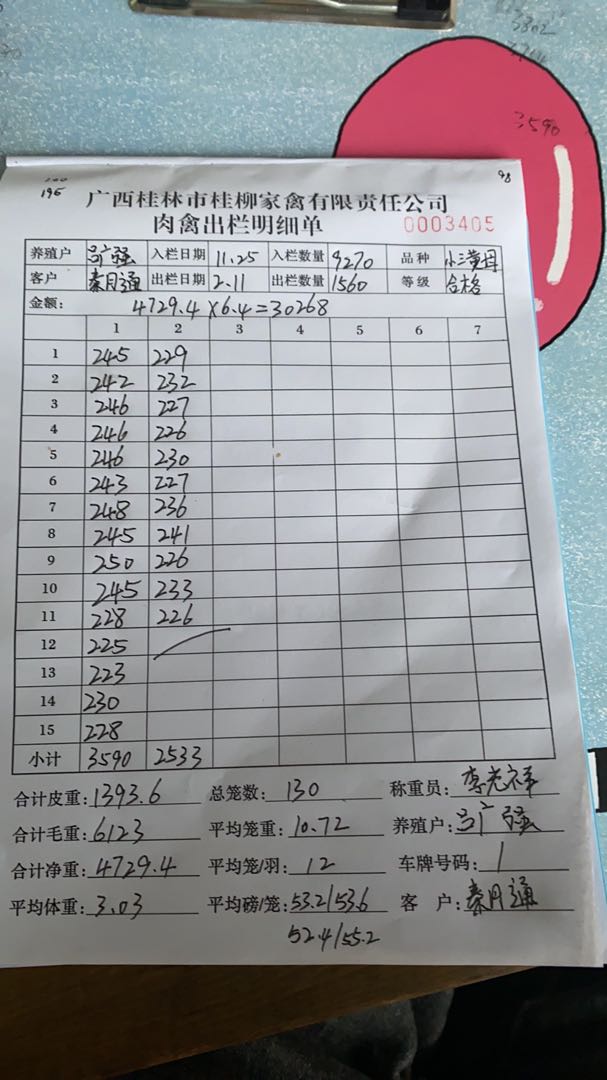 3590
98
195
广西桂林市桂柳家禽有限责任公司
肉禽出栏明细单 0003405
养殖户 吕广强 入栏日期 11.25 入栏数量 9270 品种 小三黄母
客户 秦月通 出栏日期 2.11 出栏数量 1560 等级 合格
金额: 4729.4×6.4=30268
1 2 3 4 5 6 7
1 245 229
2 242 232
3 246 227
4 246 226
5 246 230
6 243 227
7 248 236
8 245 241
9 250 226
10 245 233
11 228 226
12 225
13 223
14 230
15 228
小计 3590 2533
合计皮重:1393.6 总笼数:130 称重员:李光祥
合计毛重:6123 平均笼重:10.72 养殖户:吕广强
合计净重:4729.4 平均笼/羽:12 车牌号码:1
平均体重:3.03 平均磅/笼:53.2/53.6 客 户:秦月通
52.4/55.2